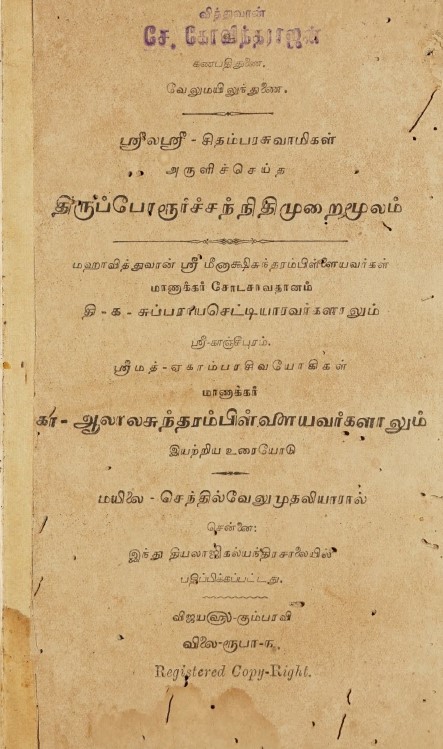 வித்துவான்
சே. கோவிந்தராஜன்
கணபதிதுணை.
வேலுமயிலுந்துணை.
ஸ்ரீலஸ்ரீ - சிதம்பரசுவாமிகள்
அருளிச்செய்த
திருப்போரூர்ச்சந்நிதிமுறைமூலம்
மஹாவித்துவான் ஸ்ரீ மீனாக்ஷிசுந்தரம்பிள்ளையவர்கள்
மாணாக்கர் சோடசாவதானம்
தி - க - சுப்பராயசெட்டியாரவர்களாலும்
ஸ்ரீ-காஞ்சீபுரம்.
ஸ்ரீமத் - ஏகாம்பரசிவயோகிகள்
மாணாக்கர்
கா - ஆலாலசுந்தரம்பிள்ளையவர்களாலும்
இயற்றிய உரையோடு
மயிலை - செந்தில்வேலுமுதலியாரால்
சென்னை:
இந்து தியலாஜிகல்யந்திரசாலையில்
பதிப்பிக்கப்பட்டது.
விஜயளு-கும்பரவி
விலை-ரூபா-௧.
Registered Copy-Right.